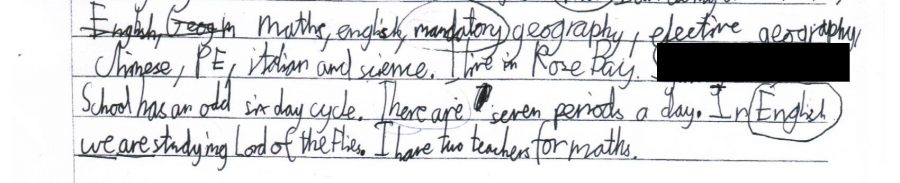 English, Geog in maths, english, mandatory geography, elective geography,
Chinese, PE, italian and science. I live in Rose Bay. S
School has an odd six day cycle. There are seven periods a day. In English
we are studying Lord of the Flies. I have two teachers for maths.